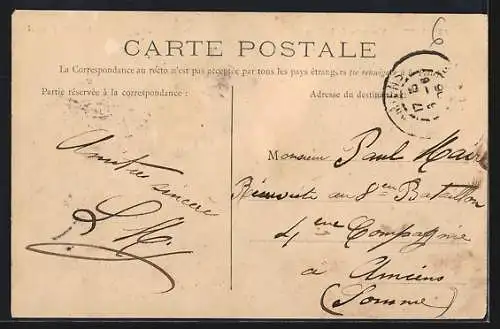 6
CARTE POSTALE
La Correspondance au recto n'est pas acceptée par tous les pays étrangers (se renseigner
Partie réservée à la correspondance :
Adresse du destinat
Amitiés sincères
Monsieur Paul Maire
au 8en Bataillon
4eme Compagnie
à Amiens
(Somme)